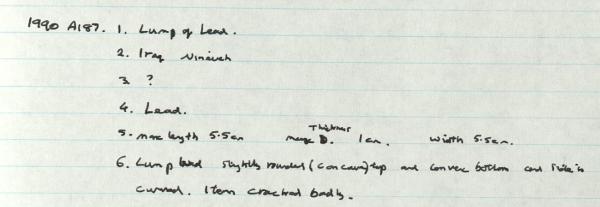 1990 A187. 1. Lump of Lead.
2. Iraq Nineveh
3. ?
4. Lead.
5. max length 5.5cm max D. Thickness 1cm. width 5.5cm.
6. Lump slightly rounded (concave) top and convex bottom and side is
curved. Item cracked badly.